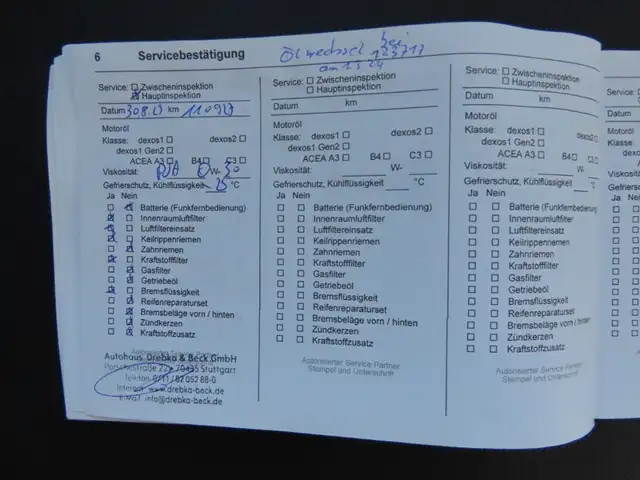 6 Servicebestätigung
Ölwechsel bei 123717
am 1.3.24
Service: Zwischeninspektion
Hauptinspektion
Datum 30.8.23 km 110927
Motoröl
Klasse: dexos1 dexos2
dexos1 Gen2
ACEA A3 B4 C3
Viskosität: 0 W- 30
Gefrierschutz, Kühlflüssigkeit -25 °C
Ja Nein
Batterie (Funkfernbedienung)
Innenraumluftfilter
Luftfiltereinsatz
Keilrippenriemen
Zahnriemen
Kraftstofffilter
Gasfilter
Getriebeöl
Bremsflüssigkeit
Reifenreparaturset
Bremsbeläge vorn / hinten
Zündkerzen
Kraftstoffzusatz
Autohaus Drebka & Beck GmbH
70435 Stuttgart
Telefon 0711/82 052 88-0
Internet: www.drebka-beck.de
E-Mail: info@drebka-beck.de
Service: Zwischeninspektion
Hauptinspektion
Datum km
Motoröl
Klasse: dexos1 dexos2
dexos1 Gen2
ACEA A3 B4 C3
Viskosität: W-
Gefrierschutz, Kühlflüssigkeit °C
Ja Nein
Batterie (Funkfernbedienung)
Innenraumluftfilter
Luftfiltereinsatz
Keilrippenriemen
Zahnriemen
Kraftstofffilter
Gasfilter
Getriebeöl
Bremsflüssigkeit
Reifenreparaturset
Bremsbeläge vorn / hinten
Zündkerzen
Kraftstoffzusatz
Autorisierter Service Partner
Stempel und Unterschrift
Service: Zwischeninspektion
Hauptinspektion
Datum km
Motoröl
Klasse: dexos1 dexos
dexos1 Gen2
ACEA A3 B4 C3
Viskosität: W-
Gefrierschutz, Kühlflüssigkeit °C
Ja Nein
Batterie (Funkfernbedienung
Innenraumluftfilter
Luftfiltereinsatz
Keilrippenriemen
Zahnriemen
Kraftstofffilter
Gasfilter
Getriebeöl
Bremsflüssigkeit
Reifenreparaturset
Bremsbeläge vorn / hinten
Zündkerzen
Kraftstoffzusatz
Autorisierter Service Partner
Stempel und Unterschrift
Service:
Datum
Motoröl
Klasse:
Viskosität:
Gefriersc
Ja Nein